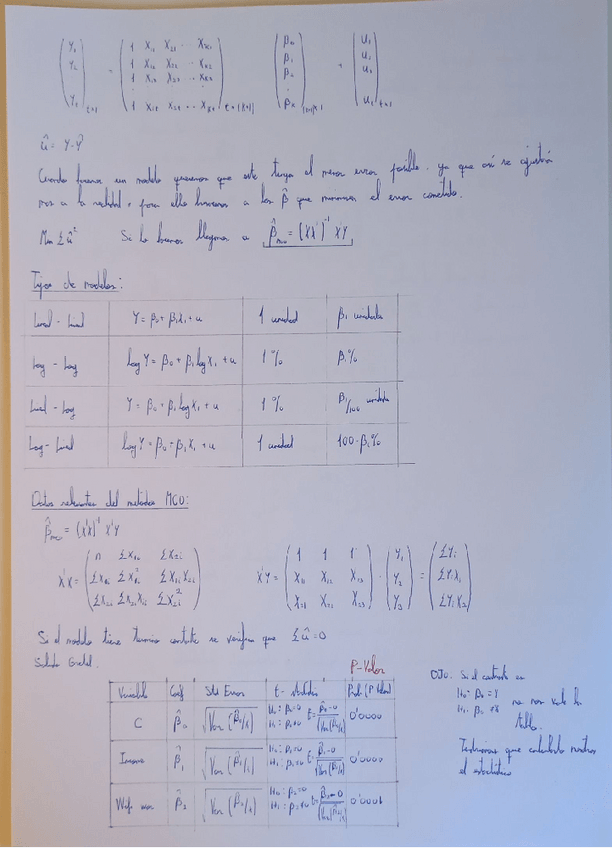 Y₁ 1 X₁₁ X₂₁ ·· Xₖ₁ β₀ U₁
Y₂ = 1 X₁₂ X₂₂ ··· Xₖ₂ β₁ + U₂
1 X₁₃ X₂₃ ··· Xₖ₃ β₂ U₃
Yₜ t×1 1 X₁ₜ X₂ₜ ··· Xₖₜ t×(k+1) βₖ (k+1)×1 Uₜ t×1
û = Y-Ŷ
Cuando un modelo queremos que este tenga el menor error posible, ya que así se
a la realidad, para ello a los β̂ que minimicen el error cometido.
Min Σû² Si lo llegamos a β̂mco = (XX')⁻¹ X'Y
Tipos de modelos:
Level - Level Y = β₀ + β₁X₁ + u 1 unidad β₁ unidades
Log - Log Log Y = β₀ + β₁ log X₁ + u 1 % β₁%
Level - Log Y = β₀ + β₁ log X₁ + u 1 % β₁/100 unidades
Log - Level log Y = β₀ + β₁ X₁ + u 1 unidad 100·β₁%
Datos relevantes del método MCO:
β̂mco = (X'X)⁻¹ X'Y
n ΣX₁ᵢ ΣX₂ᵢ 1 1 1 Y₁ ΣYᵢ
X'X = ΣX₁ᵢ ΣX₁ᵢ² ΣX₁ᵢX₂ᵢ X'Y = X₁₁ X₁₂ X₁₃ · Y₂ = ΣYᵢX₁
ΣX₂ᵢ ΣX₂ᵢX₁ᵢ ΣX₂ᵢ² X₂₁ X₂₂ X₂₃ Y₃ ΣYᵢX₂
Si el modelo tiene termino constante se verifica que Σû=0
Salida Gretl.
P-Valor
Variable Coef Std Error t - Prob (P Valor)
C β̂₀ √Var(β̂₀/x) H₀: β₀=0 H₁: β₀≠0 t= β̂₀-0/√Var(β̂₀/x) 0'0000
Income β̂₁ √Var(β̂₁/x) H₀: β₁=0 H₁: β₁≠0 t= β̂₁-0/√Var(β̂₁/x) 0'0000
β̂₂ √Var(β̂₂/x) H₀: β₂=0 H₁: β₂≠0 t= β̂₂-0/√Var(β̂₂/x) 0'0001
OJO: Si el contraste es
H₀: β₀ =
H₁: β₀ ≠ no nos vale la
tabla.
Tendríamos que calcularlo nosotros
el estadístico